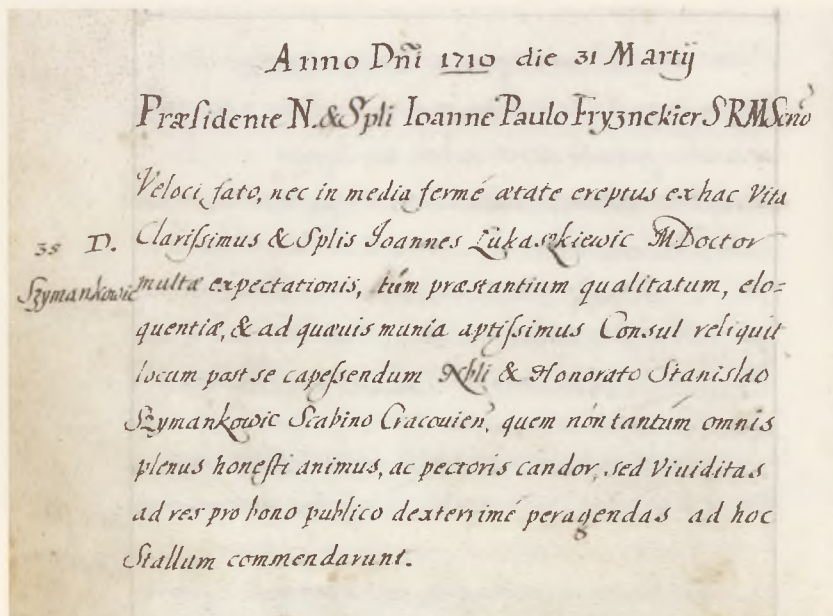 Anno Dñi 1710 die 31 Martij
Præſidente N. & Spli Ioanne Paulo Fryznekier SRM
Veloci fato, nec in media fermé ætate ereptus ex hac Vita
Clariſsimus & Splis Joannes Łukaszkiewic MDoctor
38 D.
Szymankowic
multæ expectationis, túm præstantium qualitatum, elo=
quentiæ, & ad quæuis munia aptiſsimus Consul reliquit
locum post se capeſsendum Nbli & Honorato Stanislao
Szymankowic Scabino Cracouien, quem nón tantúm omnis
plenus honeſti animus, ac pectoris candor, sed Viuiditas
ad res pro bono publico dexterrimé peragendas ad hoc
Stallum commendarunt.